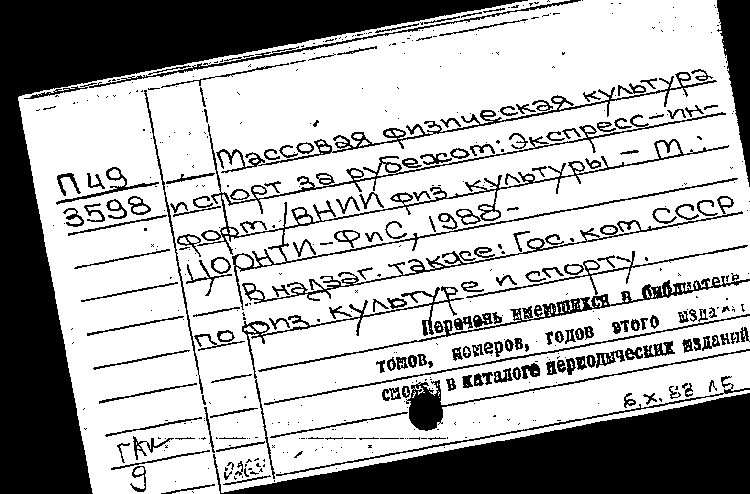 П49
3598
Массовая физическая культура
и спорт за рубежом: Экспресс-ин-
форм. / ВНИИ физ. культуры. - М.:
ЦООНТИ-ФиС, 1988-
В надзаг. также: Гос. ком. СССР
по физ. культуре и спорту.
Перечень имеющихся в библиотеке
томов, номеров, годов этого издания
смотри в каталоге периодических изданий
6.X.88 ЛБ
9